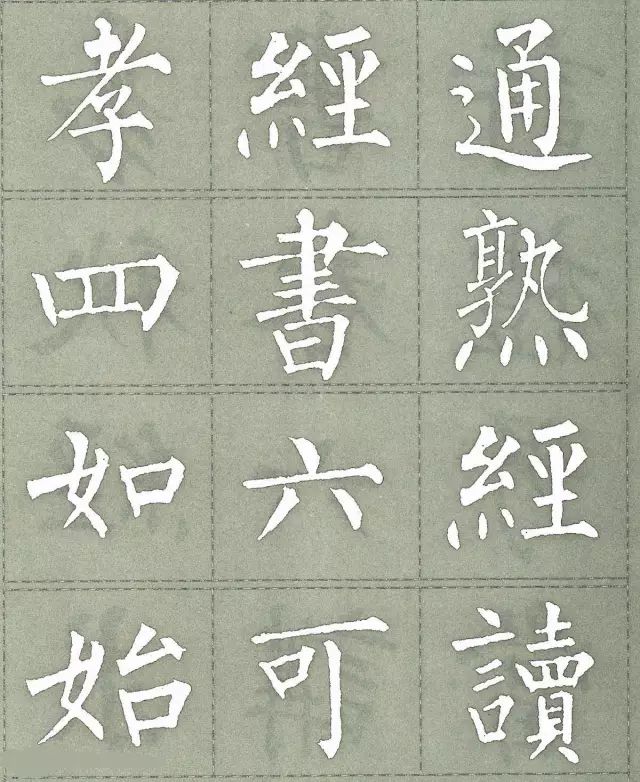 孝經通
四書熟
如六經
始可讀